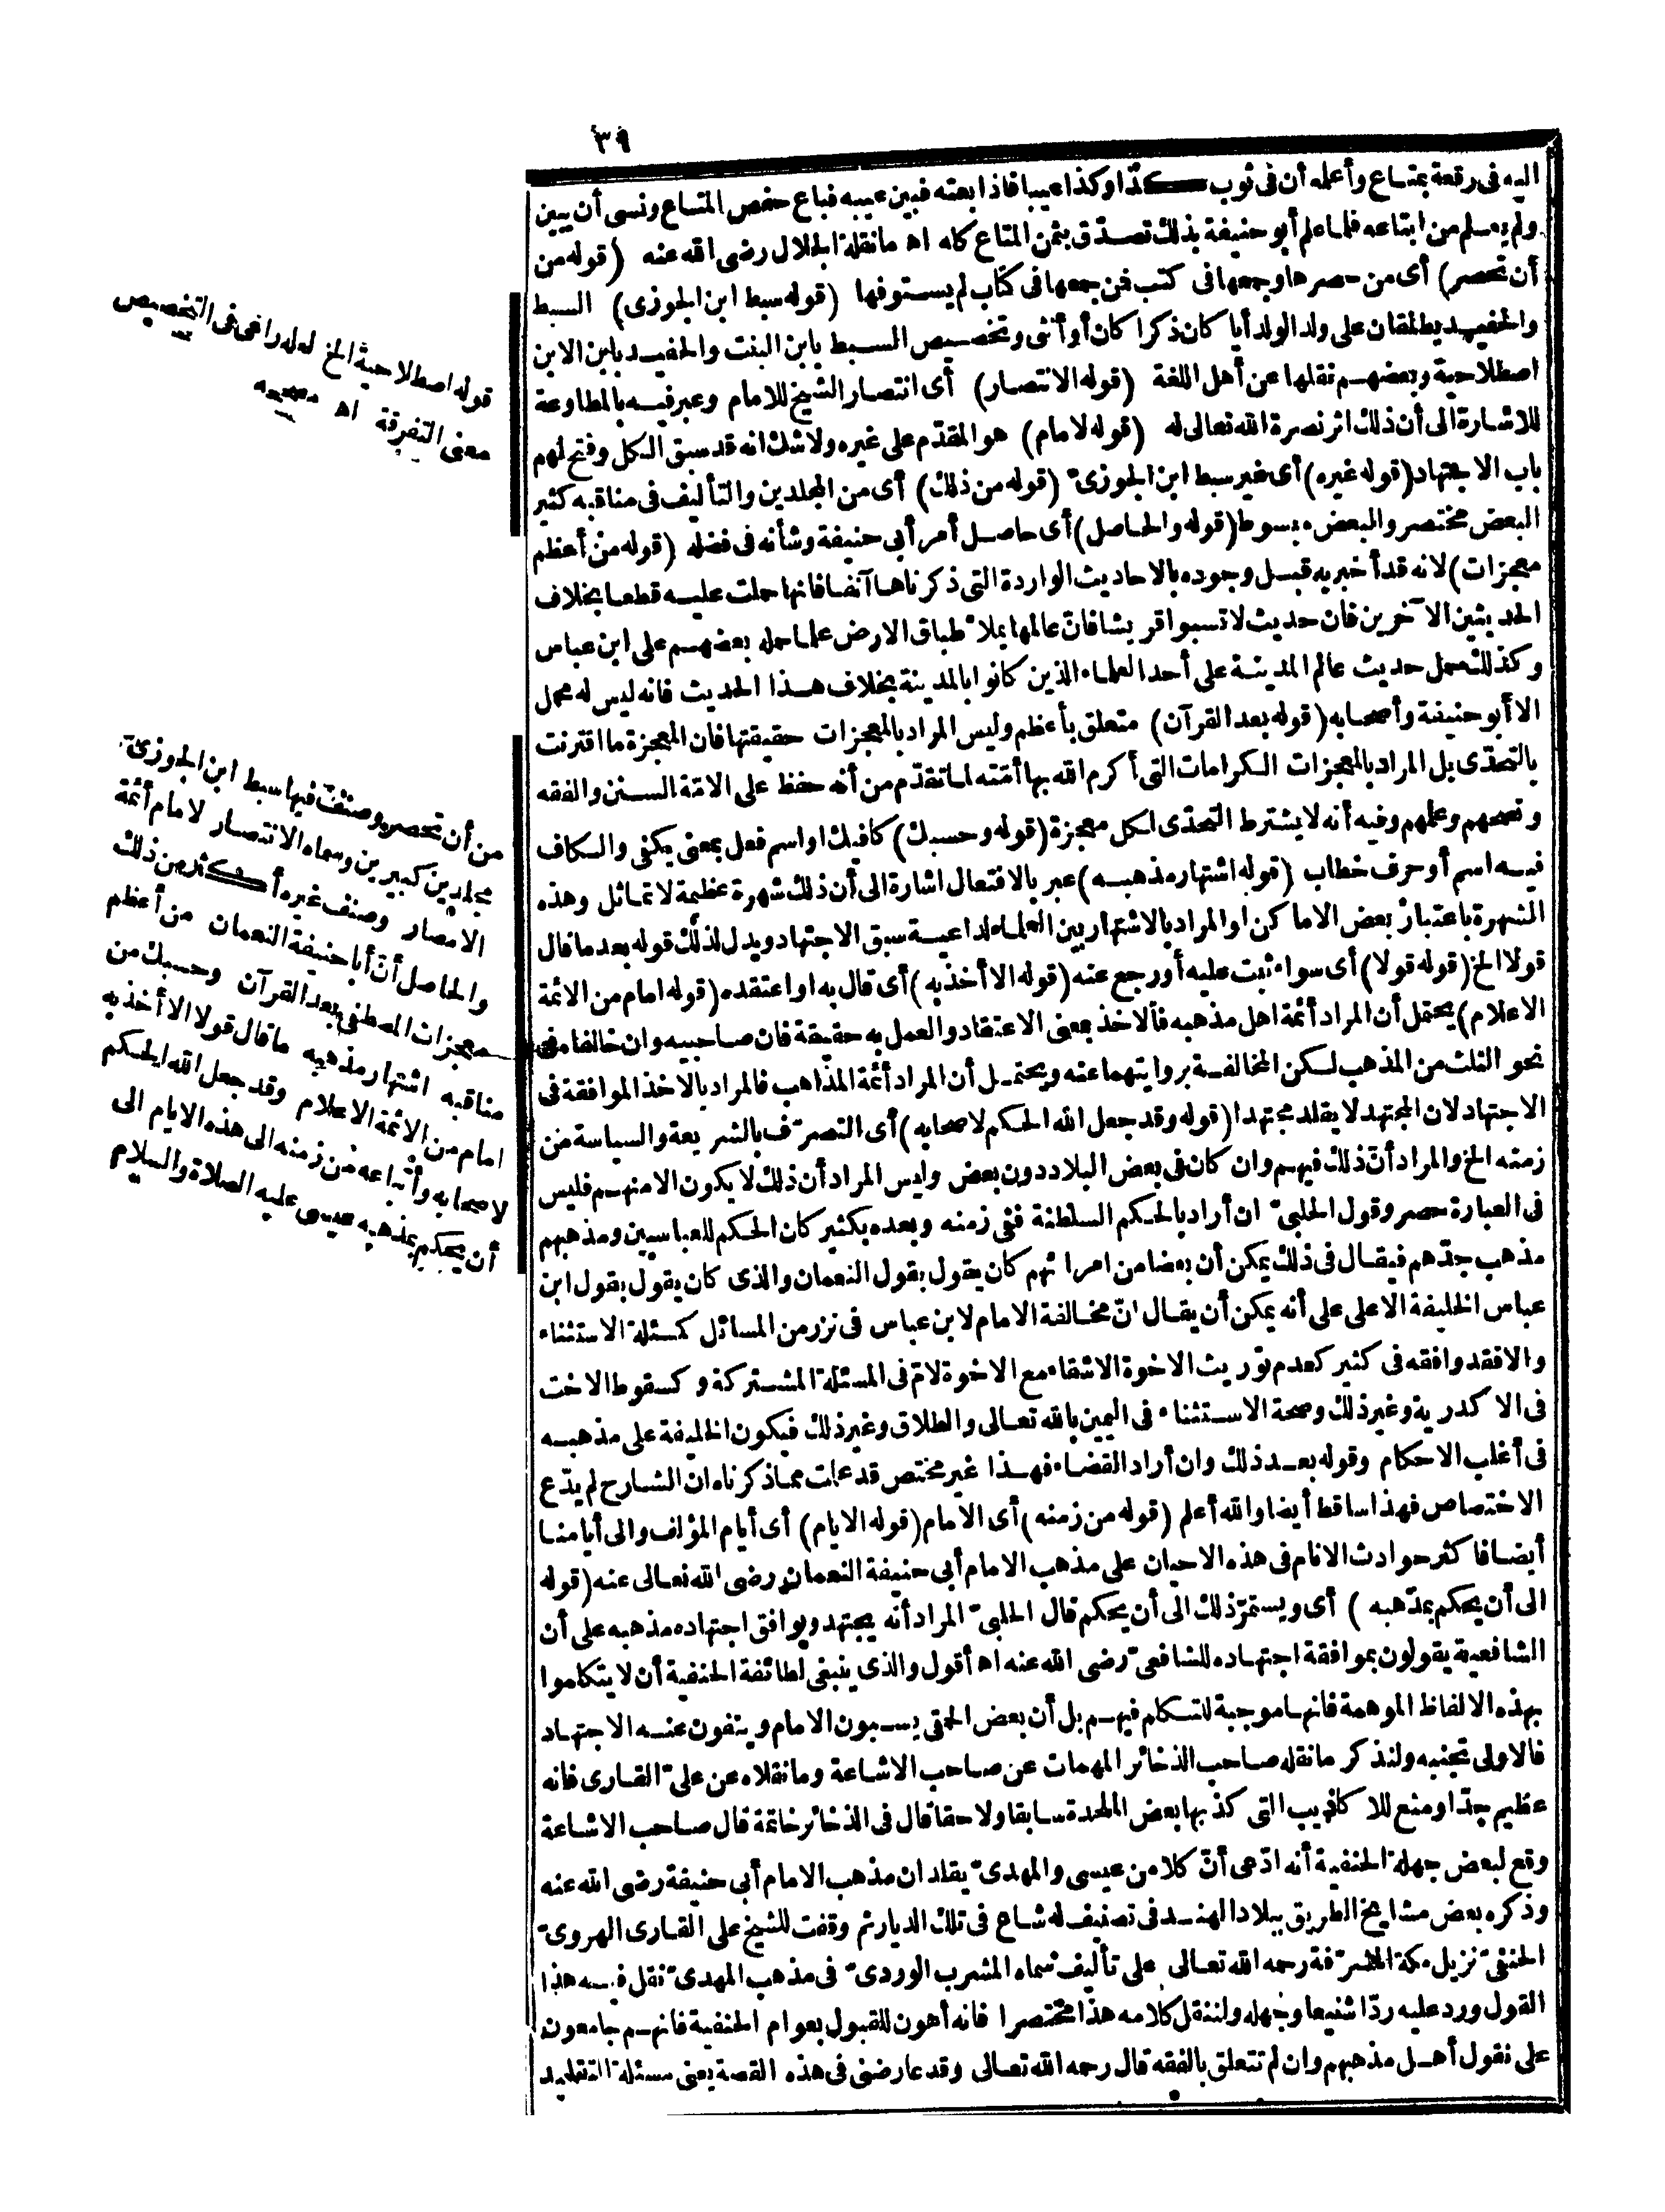 ٣٩
اليه فى رقعة بمتاع وأعلمه أن فى ثوب كذا وكذا عيبا فاذا بعته فبين عيبه فباع حفص المتاع ونسى أن يبين
ولم يعلم من ابتاعه فلما علم أبو حنيفة بذلك تصدّق بثمن المتاع كله اه ما نقله الجلال رضى الله عنه (قوله من
أن تحصر) أى من حصرها وجمعها فى كتب فمن جمعها فى كتاب لم يستوفها (قوله سبط ابن الجوزى) السبط
والحفيد يطلقان على ولد الولد أيا كان ذكرا كان أو أنثى وتخصيص السبط بابن البنت والحفيد بابن الابن
اصطلاحية وبعضهم نقلها عن أهل اللغة (قوله الانتصار) أى انتصار الشيخ للامام وعبر فيه بالمطاوعة
للاشارة الى أن ذلك اثر نصرة الله تعالى له (قوله لامام) هو المقدّم على غيره ولا شك انه قد سبق الكل وفتح لهم
باب الاجتهاد (قوله غيره) أى غير سبط ابن الجوزىّ (قوله من ذلك) أى من المجلدين والتأليف فى مناقبه كثير
البعض مختصر والبعض مبسوط (قوله والحاصل) أى حاصل أمر أبى حنيفة وشأنه فى فضله (قوله من أعظم
معجزات) لانه قد أخبر به قبل وجوده بالاحاديث الواردة التى ذكرناها آنفا فانها حملت عليه قطعا بخلاف
الحديثين الآخرين فان حديث لا تسبوا قريشا فانّ عالمها يملأ طباق الارض علما حمله بعضهم على ابن عباس
وكذلك حمل حديث عالم المدينة على أحد العلماء الذين كانوا بالمدينة بخلاف هذا الحديث فانه ليس له محمل
الا أبو حنيفة وأصحابه (قوله بعد القرآن) متعلق بأعظم وليس المراد بالمعجزات حقيقتها فان المعجزة ما اقترنت
بالتحدّى بل المراد بالمعجزات الكرامات التى أكرم الله بها أمّته لما تقدّم من أنه حفظ على الامّة السنن والفقه
ونصحهم وعلمهم وفيه أنه لا يشترط التحدّى لكل معجزة (قوله وحسبك) كافيك او اسم فعل بمعنى يكفى والكاف
فيه اسم أو حرف خطاب (قوله اشتهار مذهبه) عبر بالافتعال اشارة الى أن ذلك شهرة عظيمة لا تماثل وهذه
الشهرة باعتبار بعض الاماكن او المراد بالاشتهار بين العلماء لداعية سبق الاجتهاد ويدل لذلك قوله بعد ما قال
قولا الخ (قوله قولا) أى سواء ثبت عليه أو رجع عنه (قوله الا أخذ به) أى قال به او اعتقده (قوله امام من الائمة
الاعلام) يحتمل أن المراد أئمة اهل مذهبه فالاخذ بمعنى الاعتقاد والعمل به حقيقة فان صاحبيه وان خالفاه فى
نحو الثلث من المذهب لكن المخالفة بروايتهما عنه ويحتمل أن المراد أئمة المذاهب فالمراد بالاخذ الموافقة فى
الاجتهاد لان المجتهد لا يقلد مجتهدا (قوله وقد جعل الله الحكم لاصحابه) أى التصرّف بالشريعة والسياسة من
زمنه الخ والمراد أنّ ذلك فيهم وان كان فى بعض البلاد دون بعض وليس المراد أن ذلك لا يكون الا منهم فليس
فى العبارة حصر وقول الحلبىّ ان أراد بالحكم السلطنة ففى زمنه وبعده بكثير كان الحكم للعباسيين ومذهبهم
مذهب جدّهم فيقال فى ذلك يمكن أن بعضا من امرائهم كان يقول بقول النعمان والذى كان يقول بقول ابن
عباس الخليفة الاعلى على أنه يمكن أن يقال انّ مخالفة الامام لابن عباس فى نزر من المسائل كمسئلة الاستثناء
والا فقد وافقه فى كثير كعدم توريث الاخوة الاشقاء مع الاخوة لامّ فى المسئلة المشتركة وكسقوط الاخت
فى الاكدرية وغير ذلك وصحة الاستثناء فى اليمين بالله تعالى والطلاق وغير ذلك فيكون الخليفة على مذهبه
فى أغلب الاحكام وقوله بعد ذلك وان أراد القضاء فهذا غير مختص قد علمت مما ذكرناه ان الشارح لم يدّع
الاختصاص فهذا ساقط أيضا والله أعلم (قوله من زمنه) أى الامام (قوله الايام) أى أيام المؤلف والى أيامنا
أيضا فاكثر حوادث الانام فى هذه الاحيان على مذهب الامام أبى حنيفة النعمان رضى الله تعالى عنه (قوله
الى أن يحكم بمذهبه) أى ويستمرّ ذلك الى أن يحكم قال الحلبىّ المراد أنه يجتهد ويوافق اجتهاده مذهبه على أن
الشافعية يقولون بموافقة اجتهاده للشافعىّ رضى الله عنه اه أقول والذى ينبغى لطائفة الحنفية أن لا يتكلموا
بهذه الالفاظ الموهمة فانها موجبة للتكلم فيهم بل أن بعض الحمقى يسبون الامام وينفون عنه الاجتهاد
فالاولى تجنبه ولنذكر ما نقله صاحب الذخائر المهمات عن صاحب الاشاعة وما نقلاه عن علىّ القارى فانه
عظيم جدّا ومنع للاكاذيب التى كذبها بعض الملحدة سابقا ولاحقا قال فى الذخائر خاتمة قال صاحب الاشاعة
وقع لبعض جهلة الحنفية أنه ادّعى أنّ كلا من عيسى والمهدىّ يقلدان مذهب الامام أبى حنيفة رضى الله عنه
وذكره بعض مشايخ الطريق ببلاد الهند فى تصنيف له شاع فى تلك الديار ثم وقفت للشيخ على القارى الهروىّ
الحنفىّ نزيل مكة المشرّفة رحمه الله تعالى على تأليف سماه المشرب الوردىّ فى مذهب المهدىّ نقل فيه هذا
القول ورد عليه ردّا شنيعا وجهله ولننقل كلامه هذا مختصرا فانه أهون للقبول بعوام الحنفية فانهم جامعون
على نقول أهل مذهبهم وان لم تتعلق بالفقه قال رحمه الله تعالى وقد عارضنى فى هذه القصة يعنى مسئلة التقليد
قوله اصطلاحية الخ لعله راعى فى التخصيص
معنى التفرقة اه مصححه
من أن تحصر وصنف فيها سبط ابن الجوزىّ
مجلدين كبيرين وسماه الانتصار لامام أئمة
الامصار وصنف غيره أكثر من ذلك
والحاصل أنّ أبا حنيفة النعمان من أعظم
معجزات المصطفى بعد القرآن وحسبك من
مناقبه اشتهار مذهبه ما قال قولا الا أخذ به
امام من الائمة الاعلام وقد جعل الله الحكم
لاصحابه وأتباعه من زمنه الى هذه الايام الى
أن يحكم بمذهبه عيسى عليه الصلاة والسلام